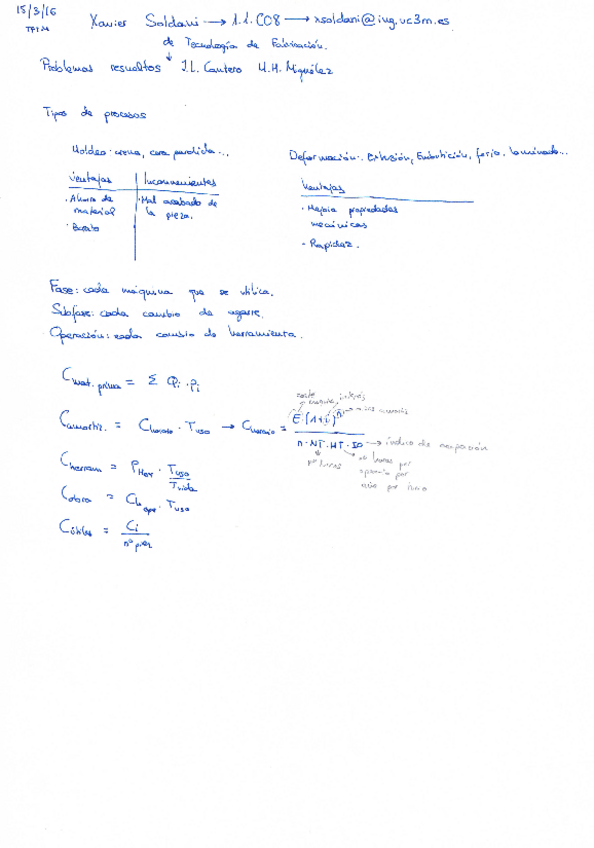 15/3/16
Xavier Soldani → 1.1.C08 → xsoldani@ing.uc3m.es
de Tecnología de Fabricación.
Problemas resueltos J.L. Cantero M.H. Miguélez
Tipos de procesos
Moldeo: arena, cera perdida...
Ventajas | Inconvenientes
· Ahorro de material
· Barato
· Mal acabado de la pieza.
Deformación: Extrusión, Embutición, forja, laminado...
Ventajas
· Mejora propiedades mecánicas
· Rapidez.
Fase: cada máquina que se utiliza.
Subfase: cada cambio de agarre.
Operación: cada cambio de herramienta.
C mat. prima = Σ Qi · Pi
C amortiz. = C horario · T uso → C horario = E·(1+i)^n / n·NT·HT·IO → índice de ocupación
coste máquina interés
nº horas por operario por
C herram = P Her · T uso / T vida
C obra = C h oper · T uso
C útiles = Ci / nº piez